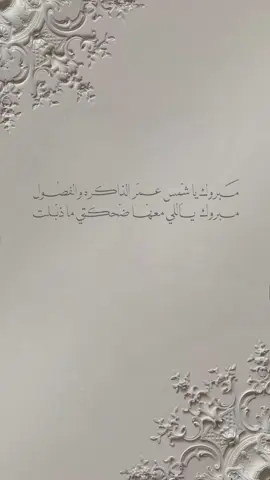 مبروك يا شمس عمر الذاكره والفصول
مبروك ياللي معها ضحكتي ما ذبلت